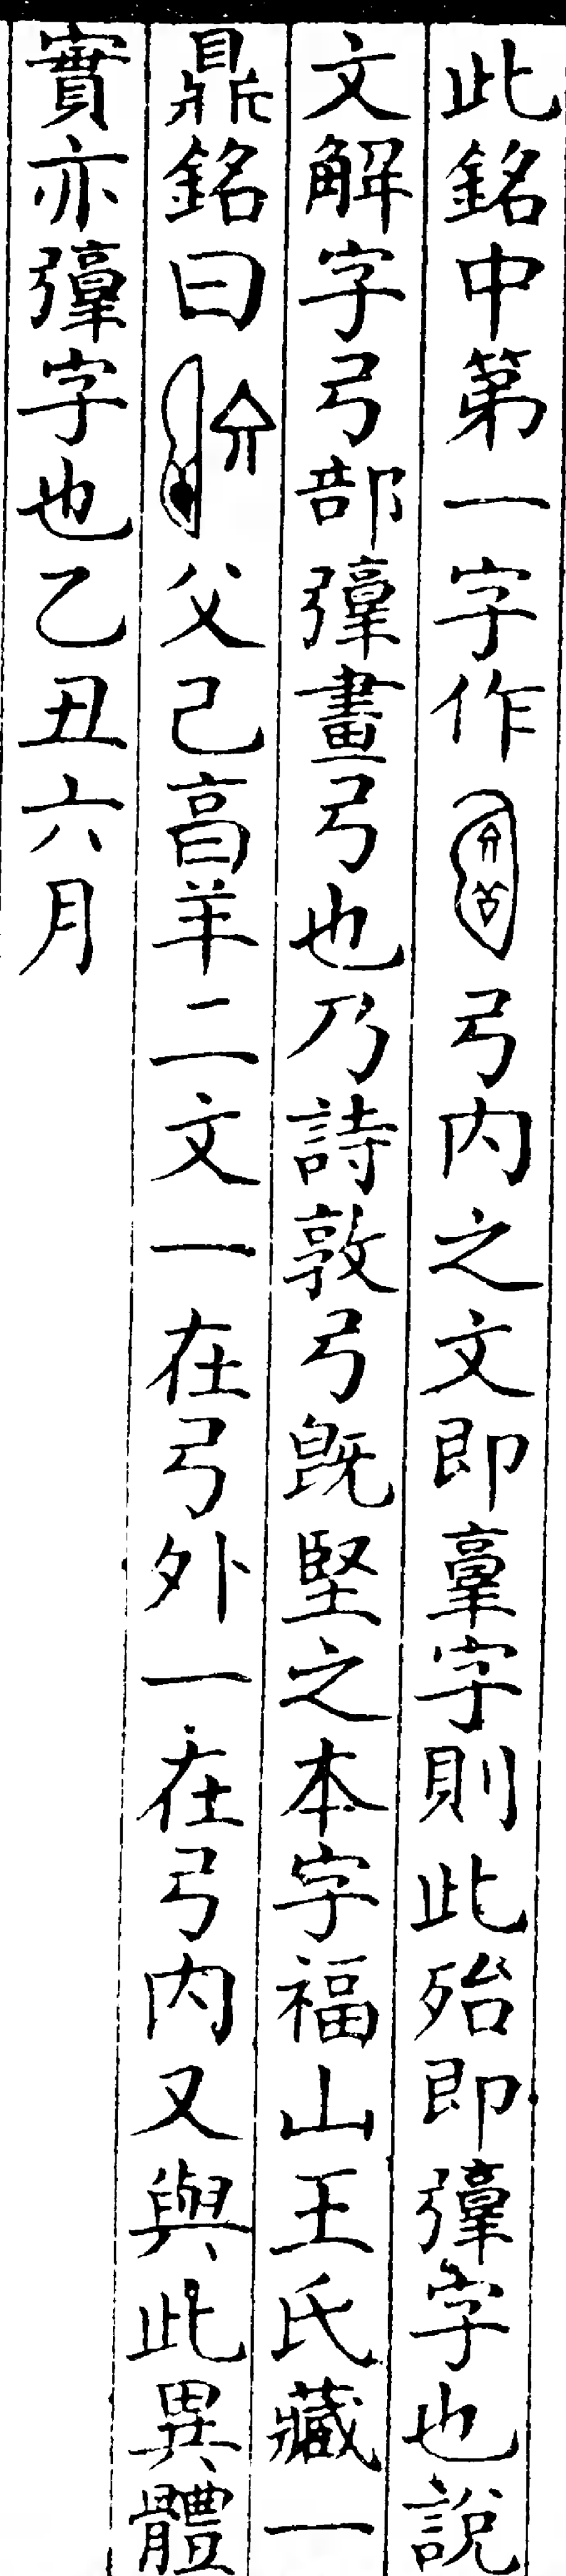 此銘中第一字作弓内之文即𦎫字則此殆即弴字也說
文解字弓部弴畫弓也乃詩敦弓旣堅之本字福山王氏藏一
鼎銘曰父己𦎫羊二文一在弓外一在弓内又與此異體
實亦弴字也乙丑六月